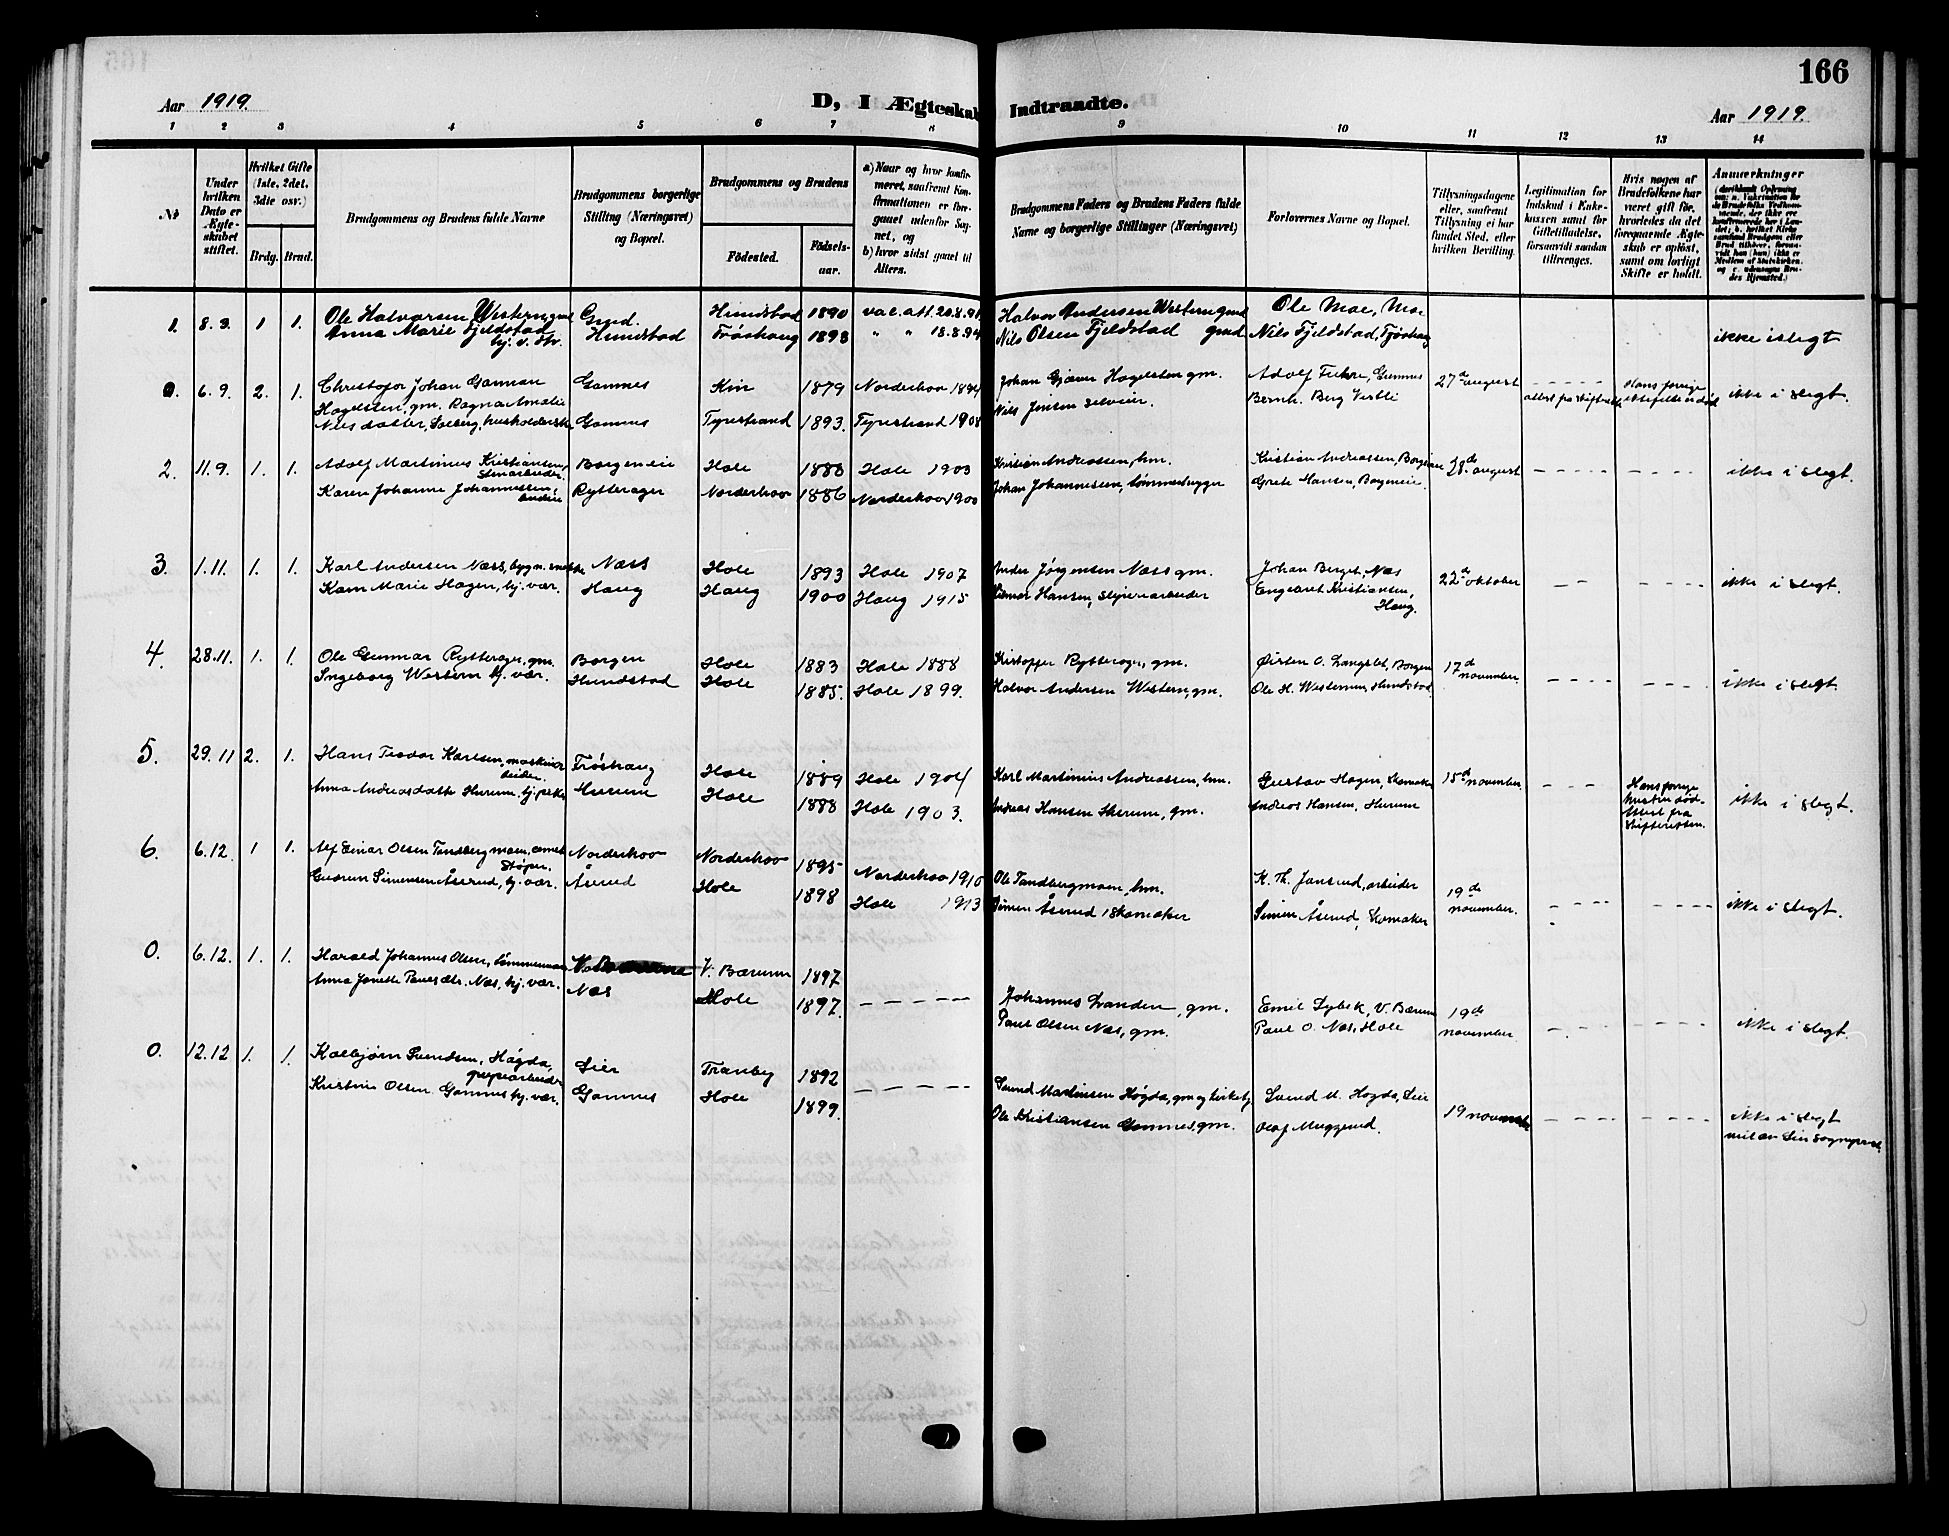 166
Aar 1919.
D, I Ægteskab Indtraadte.
Aar 1919.
1 2 3 4 5 6 7 8 9 10 11 12 13 14
№
Under hvilken Dato er Ægteskabet stiftet.
Hvilket Gifte (1ste, 2det, 3die osv.)
Brdg. Brud.
Brudgommens og Brudens fulde Navne
Brudgommens borgerlige Stilling (Næringsvei) og Bopæl.
Brudgommens og Brudens
Fødested.
Fødselsaar.
a) Naar og hvor konfirmeret, saafremt Konfirmationen er foregaaet udenfor Sognet, og
b) hvor sidst gaaet til Alters.
Brudgommens Faders og Brudens Faders fulde Navne og borgerlige Stillinger (Næringsvei)
Forlovernes Navne og Bopæl.
Tillysningsdagene eller, saafremt Tillysning ei har fundet Sted, efter hvilken Bevilling.
Legitimation for Indskud i Enkekassen samt for Giftetilladelse, forsaavidt saadan tiltrænges.
Hvis nogen af Brudefolkene har været gift før, hvorledes da det foregaaende Ægteskab er opløst, samt om lovligt Skifte er holdt.
Anmærkninger
1. 8.3. 1 1. Ole Halvorsen Western, gmd Gmd. Hundstad 1890 vac. att. 20.8.91 Halvor Andersen Western gmd Ole Moe, Moe
Anna Marie Fjeldstad Hundstad Frøshaug 1893 " " 18.8.94 Nils Olsen Fjeldstad gmd Nils Fjeldstad, Frøshaug ikke i slegt
hj. v. str.
0. 6.9. 2. 1. Christofor Johan Garman Gomnes Kin 1879 Norderhov 1894 Johan Gjæver Hagelsten gm. Adolf Fekre, Gomnes 27de august - - - - - Hans forrige ikke i slegt.
Hagelsten, gm. Ragna Amalie Nils Jensen Bernh. Berg Vestli attest fra skifteretten ektefelle er død
Nilsdatter, Solberg, husholderske Gomnes Tyristrand 1893. Tyristrand 1908
2. 11.9. 1. 1. Adolf Martinus Kristiansen, Borgeneie Hole 1888 Hole 1903 Kristian Andreassen, hm. Kristian Andreassen, Borgeneie 28de august - - - - - - - - - ikke i slegt.
Karen Johanne Johannessen, Rytterager Norderhov 1886 Norderhov 1900 Johan Johannessen, tømmerhugger Grete Hansen, Borgeneie.
3. 1.11. 1. 1. Karl Andersen Næss, bygn. snekker Næss Hole 1893 Hole 1907 Anders Jørgensen Næss gm. Johan Berget, Næs 22de oktober - - - - - - - ikke i slegt.
Karn Marie Hagen, hj. vær. Haug Haug 1900 Haug 1915 Hansen, Engebret Kristiansen,
Haug.
4. 28.11. 1. 1. Ole Gunnar Rytterager, gm. Borgen Hole 1883 Hole 1888 Kristoffer Rytterager, gm. Østen O. Langslet, Borgen 17de november. - - - - - - - - - ikke i slegt.
Ingeborg Western hj. vær. Hundstad Hole 1885. Hole 1899. Halvor Andersen Western, gm. Ole H. Western, Hundstad
5. 29.11 2. 1. Hans Teodor Karlsen, maskinarbeider. Frøshaug Hole 1889 Hole 1904 Karl Martinius Andreassen, hm. Gustav Hagen, skomaker 15de november. - - - Hans forrige hustru død. Attest fra skifteretten. ikke i slegt.
Anna Andreasdatter Hurum, Hurum Hole 1888 Hole 1903. Andreas Hansen Hurum, gm. Andreas Hansen, Hurum
6. 6.12. 1 1. Alf Einar Olsen Tandbergmoen, cementstøper. Norderhov Norderhov 1895 Norderhov 1910 Ole Tandbergmoen, hm. K. Th. Jonsrud, arbeider 19de november. - - - - - - - - ikke i slegt.
Gudrun Simensen Åserud, hj. vær. Åserud Hole 1898 Hole 1913 Simen Åserud skomaker Simen Åserud, skomaker
0. 6.12. 1. 1. Harald Johannes Olsen, tømmermann V. Bærum 1897 Johannes Landen, gm. Emil Lybek, V. Bærum 19de november. - - - - - - - - ikke i slegt.
Anna Janette Paulsdtr. Næs, hj. vær. Næs Hole 1897. - - - - - Paul Olsen Næs, gm. Paul O. Næs, Hole
0. 12.12 1. 1. Kolbjørn Svendsen, Høgda, Lier Tranby 1892 Svend Martinsen Høgda, gm og kirketj. Svend M. Høgda, Lier 19 november - - - - - - - - ikke i slegt
Kristine Olsen Gomnes hj. vær. Gomnes Hole 1899. - - - - - Ole Kristiansen Gomnes, gm. Olaf Muggerud.